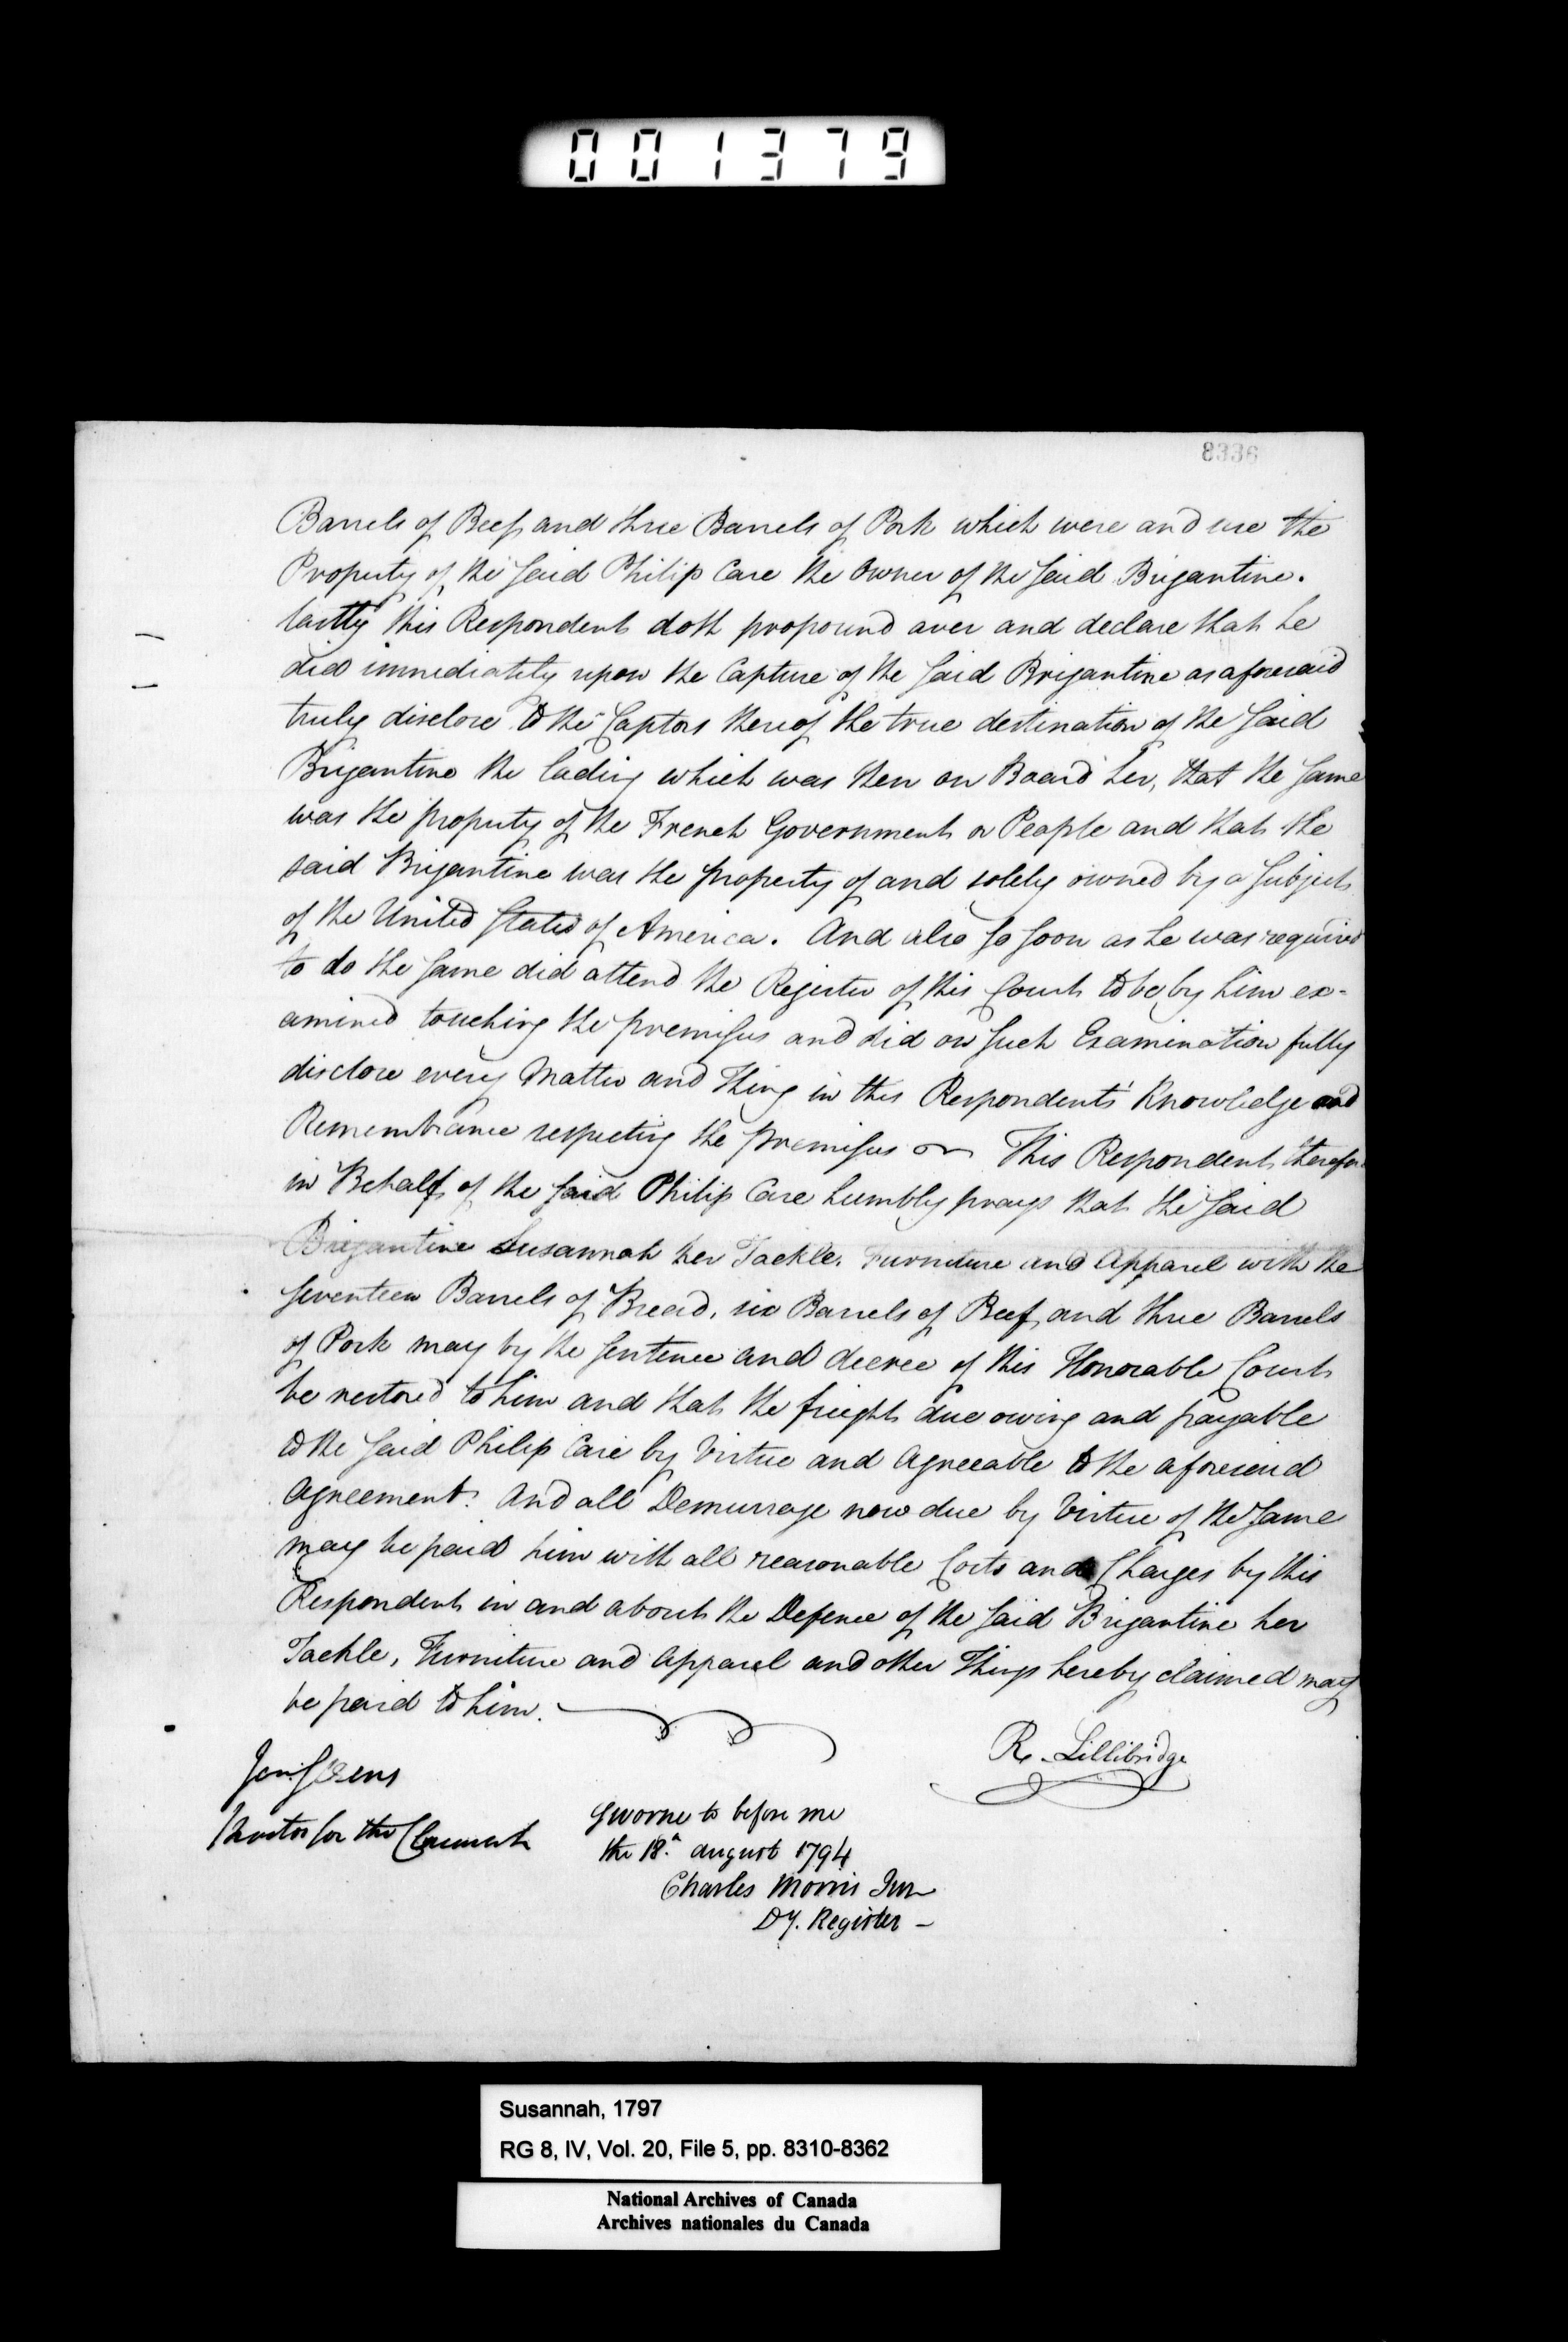 001379
8336
Barrels of Beef and three Barrels of Pork which were and are the
Property of the said Philip Care the Owner of the said Brigantine.
lastly this Respondent doth propound aver and declare that he
did immediately upon the Capture of the said Brigantine as aforesaid
truly disclose to the Captors thereof the true destination of the said
Brigantine the lading which was then on Board her, that the same
was the property of the French Government or People and that the
said Brigantine was the property of and solely owned by a Subject
of the United States of America. And also so soon as he was required
to do the same did attend the Register of this Court to be by him ex-
amined touching the premises and did on such Examination fully
disclose every Matter and Thing in this Respondents' Knowledge and
Remembrance respecting the premises This Respondent therefore
in Behalf of the said Philip Care humbly prays that the said
Brigantine Susannah her Tackle, Furniture and Apparel with the
seventeen Barrels of Bread, six Barrels of Beef and three Barrels
of Pork may by the sentence and decree of this Honorable Court
be restored to him and that the freight due owing and payable
to the said Philip Care by Virtue and Agreeable to the aforesaid
Agreement. And all Demurrage now due by Virtue of the same
may be paid him with all reasonable Costs and Charges by this
Respondent in and about the Defence of the said Brigantine her
Tackle, Furniture and Apparel and other Things hereby claimed may
be paid to him.
R. Lillibridge
Proctor for the Claimant
Sworne to before me
the 18th. august 1794
Charles Morris Junr
Dy. Register -
Susannah, 1797
RG 8, IV, Vol. 20, File 5, pp. 8310-8362
National Archives of Canada
Archives nationales du Canada